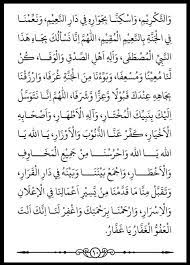 وَالتَّكْرِيْمِ، وَاسْكِنَّا بِجِوَارِهِ فِيْ دَارِ النَّعِيْمِ، وَنَعِّمْنَا
فِي الْجَنَّةِ بِالنَّعِيْمِ الْمُقِيْمِ، اَللّٰهُمَّ اِنَّا نَسْأَلُكَ بِجَاهِ هَذَا
النَّبِيِّ الْمُصْطَفَى، وَآلِهِ أَهْلِ الصِّدْقِ وَالْوَفَا، كُنْ
لَنَا مُعِيْنًا وَمُسْعِفًا، وَبَوِّئْنَا مِنَ الْجَنَّةِ غُرَفًا، وَارْزُقْنَا
بِجَاهِهِ عِنْدَكَ قَبُوْلًا وَعِزًّا وَشَرَفًا، اَللّٰهُمَّ إِنَّا نَتَوَسَّلُ
إِلَيْكَ بِنَبِيِّكَ الْمُخْتَارِ، وَآلِهِ الْأَطْهَارِ، وَأَصْحَابِهِ
الْأَخْيَارِ، كَفِّرْ عَنَّا الذُّنُوْبَ وَالْأَوْزَارَ، يَا اَللّٰه يَا اَللّٰه
يَا اَللّٰه وَاحْرُسْنَا مِنْ جَمِيْعِ الْمَخَاوِفِ
وَالْأَخْطَارِ، وَاجْمَعْ بَيْنَنَا وَبَيْنَهُ فِيْ دَارِ الْقَرَارِ،
وَتَقَبَّلْ مِنَّا مَا قَدَّمْنَا مِنْ يَسِيْرِ أَعْمَالِنَا فِي الْإِعْلَانِ
وَالْإِسْرَارِ، وَارْحَمْنَا بِرَحْمَتِكَ وَاغْفِرْ لَنَا إِنَّكَ أَنْتَ
الْعَفُوُّ الْغَفَّارُ يَا غَفَّارُ